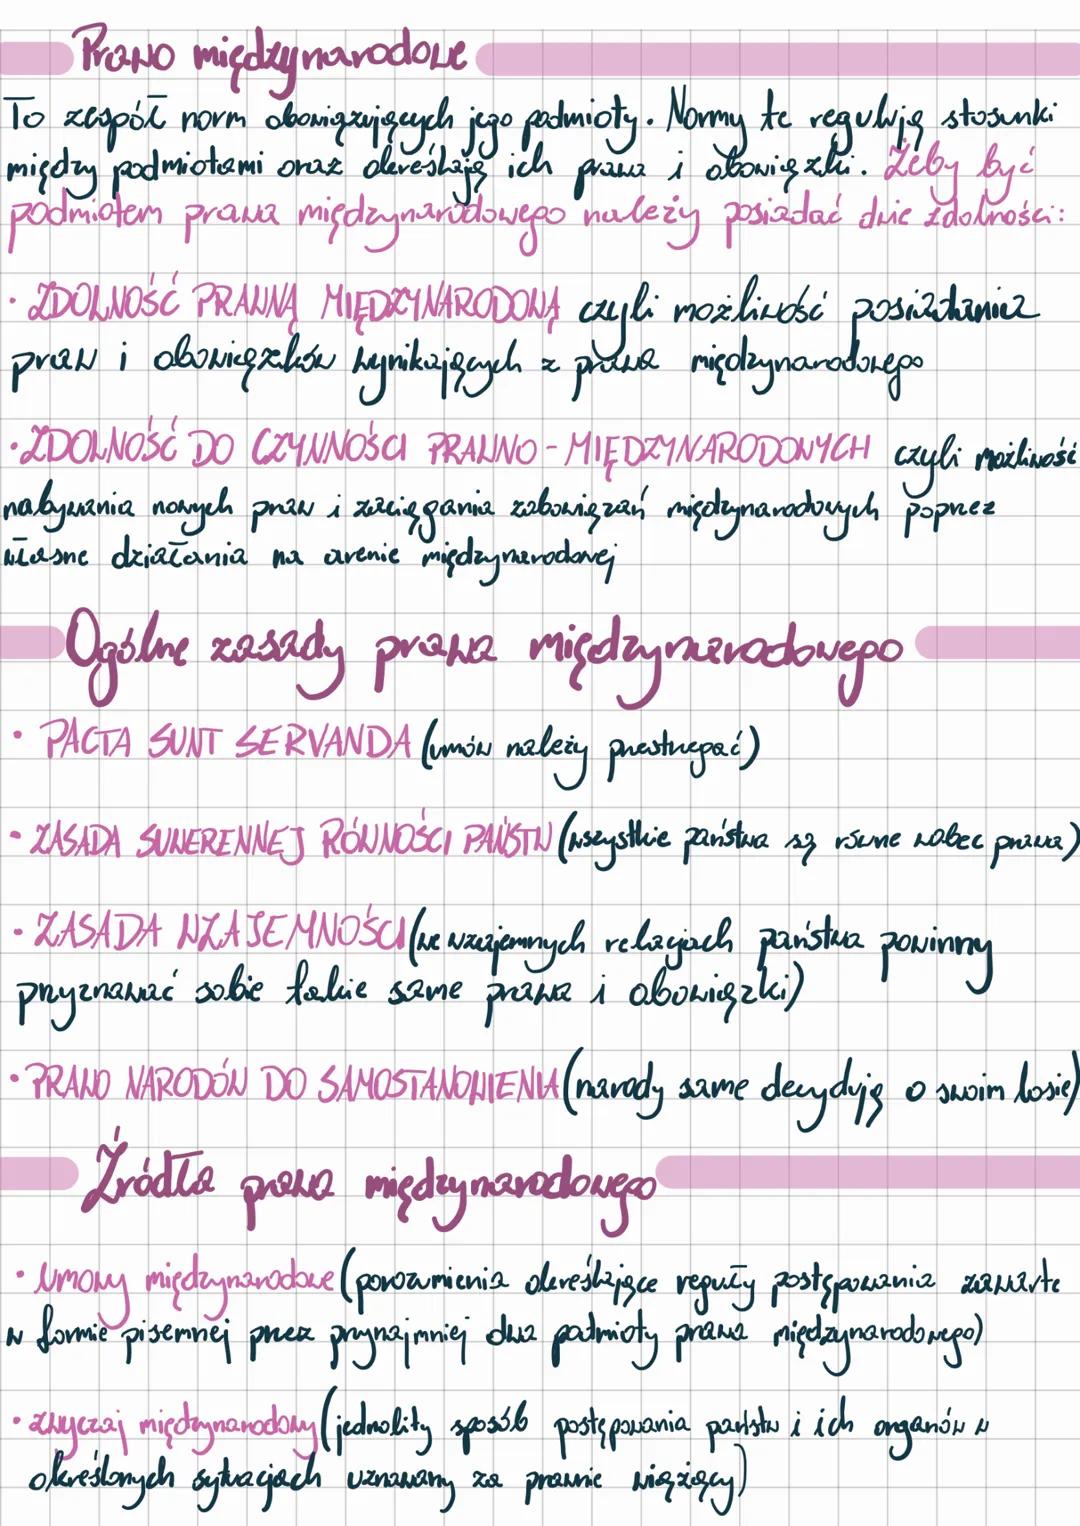 Prawo międzynarodowe
To zespół norm obowiązujących jego podmioty. Normy te regulują stosunki
między podmiotami oraz określają ich prawa i obowiązki. Żeby być
podmiotem prawa międzynarodowego należy posiadać dwie zdolności:
· ZDOLNOŚĆ PRAWNĄ MIĘDZYNARODOWĄ czyli możliwość posiadania
praw i obowiązków wynikających z prawa międzynarodowego
· ZDOLNOŚĆ DO CZYNNOŚCI PRAWNO-MIĘDZYNARODOWYCH czyli możliwość
nabywania nowych praw i zaciągania zobowiązań międzynarodowych poprzez
własne działania na arenie międzynarodowej
Ogólne zasady prawa międzynarodowego
· PACTA SUNT SERVANDA (umów należy przestrzegać)
· ZASADA SUWERENNEJ RÓWNOŚCI PAŃSTW (wszystkie państwa są równe wobec prawa)
· ZASADA WZAJEMNOŚCI (we wzajemnych relacjach państwa powinny
przyznawać sobie takie same prawa i obowiązki)
· PRAWO NARODÓW DO SAMOSTANOWIENIA (narody same decydują o swoim losie)
Źródła prawa międzynarodowego
· Umowy międzynarodowe (porozumienia określające reguły postępowania zawarte
w formie pisemnej przez przynajmniej dwa podmioty prawa międzynarodowego)
· zwyczaj międzynarodowy (jednolity sposób postępowania państw i ich organów w
określonych sytuacjach uznawany za prawnie wiążący)